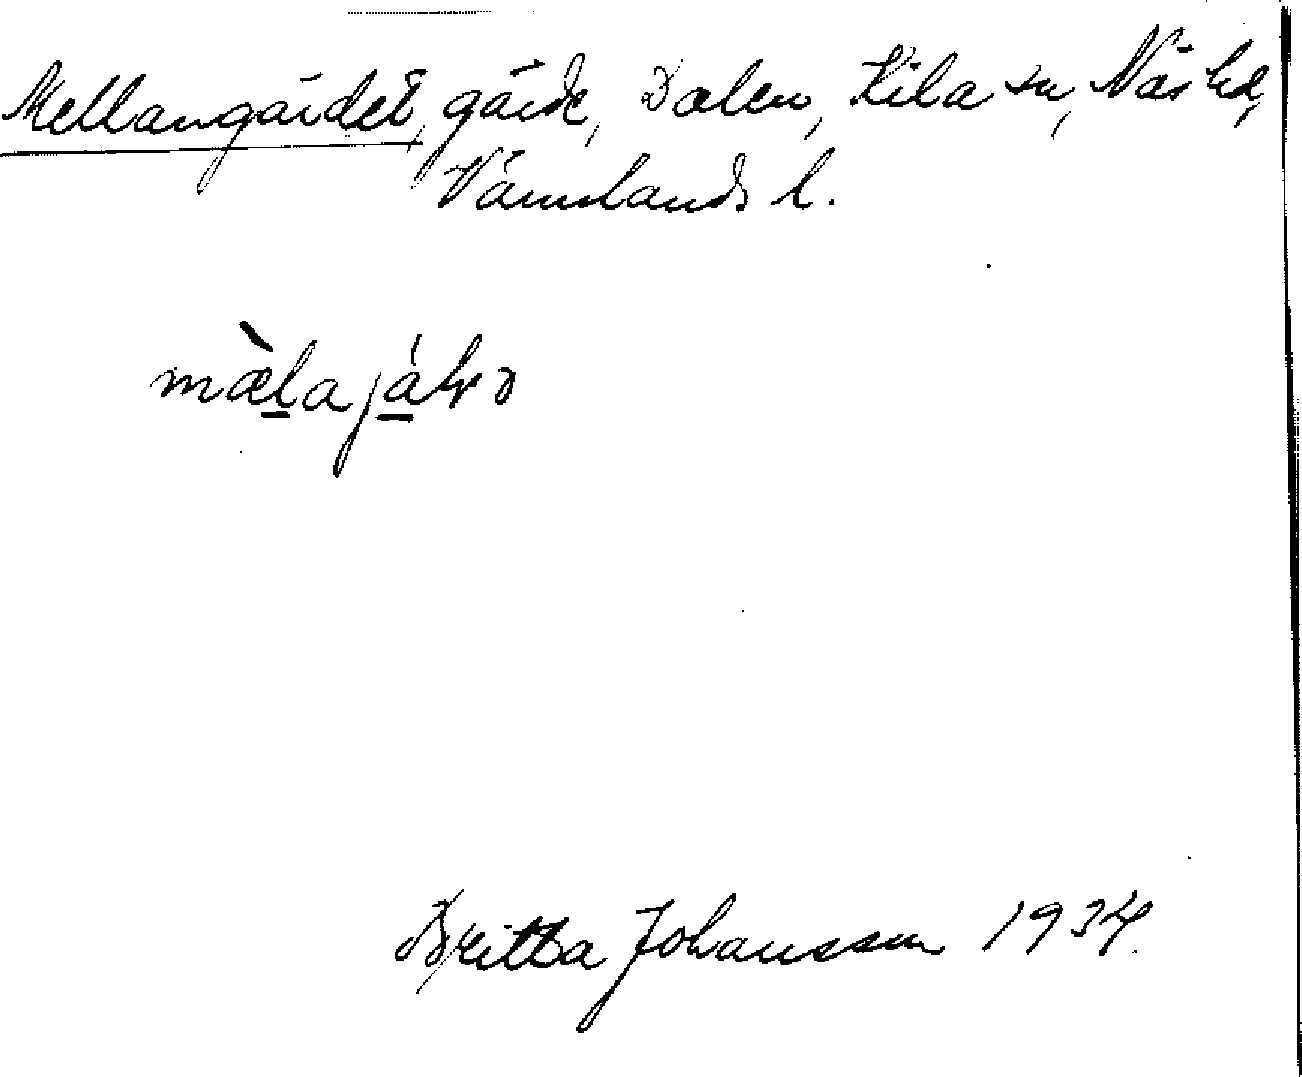 Mellangärdet, gärde, Dalen, Kila sn, Näs hd,
Värmlands l.
mæ̀lajáƚə
Britta Johansson 1934.